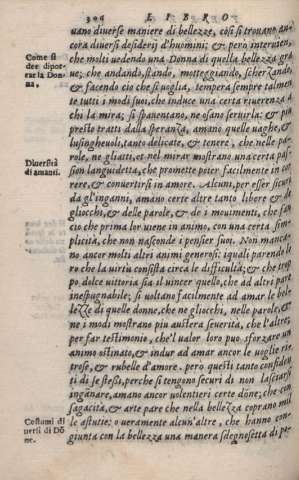 304 LIBRO
uano diuerse maniere di bellezze, cosi si trouano an-
cora diuersi desiderij d'huomini; & però interuien,
Come si dee diportar la Donna.
che molti uedendo una Donna di quella bellezza gra
ue; che andando, stando, motteggiando, scherzando,
& facendo ciò che si uoglia, tempera sempre talmen
te tutti i modi suoi, che induce una certa riuerenza à
chi la mira; si spauentano, ne osano seruirla: & piu
presto tratti dalla speranza, amano quelle uaghe, &
lusingheuoli, tanto delicate, & tenere, che nelle pa-
role, ne gli atti, et nel mirar mostrano una certa pas-
Diuersità di amanti.
sion languidetta, che promette poter facilmente in cor
rere, & conuertirsi in amore. Alcuni, per esser sicuri
da gl'inganni, amano certe altre tanto libere & de
gliocchi, & delle parole, & de i mouimenti, che fan
ciò che prima lor uiene in animo, con una certa sim-
plicità, che non nasconde i pensier suoi. Non manca-
no ancor molti altri animi generosi: iquali parendo lo
ro che la uirtù consista circa le difficultà; & che trop
po dolce uittoria sia il uincer quello, che ad altri pare
inespugnabile; si uoltano facilmente ad amar le bel-
lezze di quelle donne, che ne gliocchi, nelle parole, &
ne i modi mostrano piu austera seuerità, che l'altre;
per far testimonio, che'l ualor loro puo sforzare un
animo ostinato, & indur ad amar ancor le uoglie ri-
trose, & rubelle d'amore. però questi tanto confiden
ti di se stessi, perche si tengono securi di non lasciarsi
ingannare, amano ancor uolentieri certe dōne, che con
sagacità, & arte pare che nella bellezza coprano mil
Costumi diuersi di Dōne.
le astutie; o ueramente alcun'altre, che hanno con-
giunta con la bellezza una maniera sdegnosetta di po-